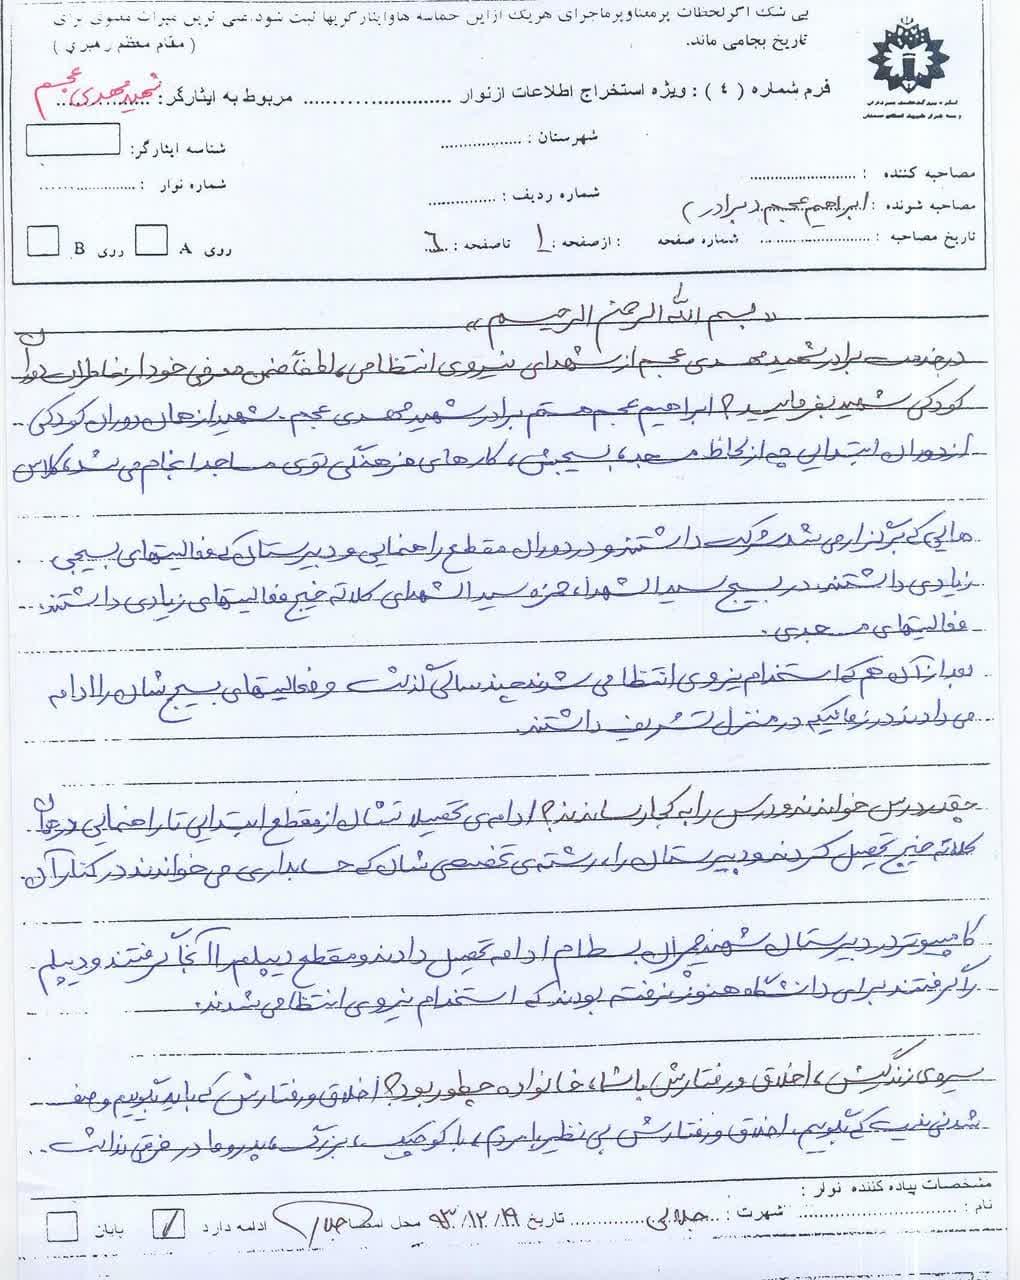 بی شک اگر لحظات پرمعنا و پرماجرای هریک از این حماسه ها و ایثارگریها ثبت شود، غنی ترین میراث معنوی برای
تاریخ بجامی ماند.
( مقام معظم رهبری )
فرم شماره ( ٤ ) : ویژه استخراج اطلاعات از نوار ........................ مربوط به ایثارگر: شهید مهدی عجم
شهرستان : ................
شناسه ایثارگر:
مصاحبه کننده : ........................
شماره ردیف : ..............
شماره نوار : ....................
مصاحبه شونده : ابراهیم عجم (برادر)
تاریخ مصاحبه : ........................ شماره صفحه : ازصفحه : 1 تاصفحه : 6
روی A روی B
«بسم الله الرحمن الرحیم»
در خدمت برادر شهید مهدی عجم از شهدای نیروی انتظامی، لطفاً ضمن معرفی خود از خاطرات دوران
کودکی شهید بفرمایید؟ ابراهیم عجم هستم برادر شهید مهدی عجم. شهید از همان دوران کودکی
از دوران ابتدایی چه از لحاظ مسجد، بسیجش، کارهای فرهنگی توی مساجد انجام می شد، کلاس
هایی که برگزار می شد شرکت داشتند و در دوران مقطع راهنمایی و دبیرستان که فعالیتهای بسیجی
زیادی داشتند. در بسیج سید الشهدا، حوزه سید الشهدای کلاته خیج فعالیتهای زیادی داشتند.
فعالیتهای مسجدی.
بعد از آن هم که استخدام نیروی انتظامی شدند چند سالی گذشت و فعالیتهای بسیج شان را ادامه
می دادند در زمانیکه در منزل تشریف داشتند.
چقدر درس خواندند و درس را به کجا رساندند؟ ادامه ی تحصیلاتشان از مقطع ابتدایی تا راهنمایی در همان
کلاته خیج تحصیل کردند و دبیرستان را، رشته ی تخصصی شان که حسابداری می خواندند در کنار آن
کامپیوتر در دبیرستان شهید چمران بسطام ادامه تحصیل دادند و مقطع دیپلم را آنجا گرفتند و دیپلم
را گرفتند برای دانشگاه هنوز نرفته بودند که استخدام نیروی انتظامی شدند.
سیره ی زندگیش، اخلاق و رفتارش با شما، خانواده چطور بود؟ اخلاق و رفتارش که باید بگوییم وصف
شدنی نیست که بگویم، اخلاق و رفتارش بی نظیر با مردم، با کوچک، بزرگ، پدر و مادر فرقی نداشت.
مشخصات پیاده کننده نوار :
نام : ........................ شهرت : جلالی ............ تاریخ 93/12/19 محل امضا ادامه دارد پایان